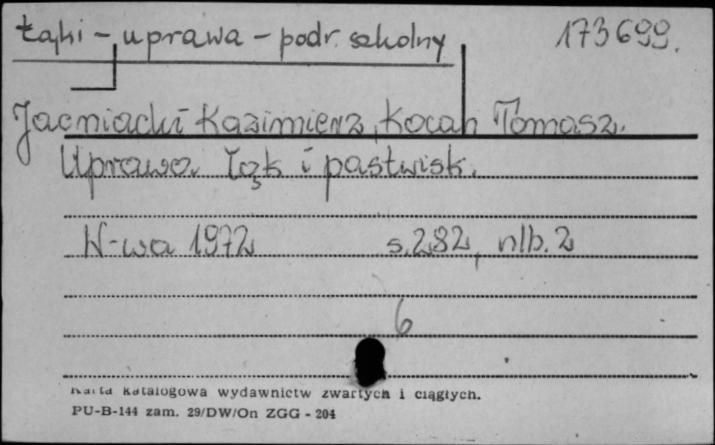 Łąki - uprawa - podr. szkolny 173699.
Jacniacki Kazimierz, Kocan Tomasz.
Uprawa łąk i pastwisk.
W-wa 1972 s. 282, nlb. 2
6
Karta katalogowa wydawnictw zwartych i ciągłych.
PU-B-144 zam. 29/DW/On ZGG - 204